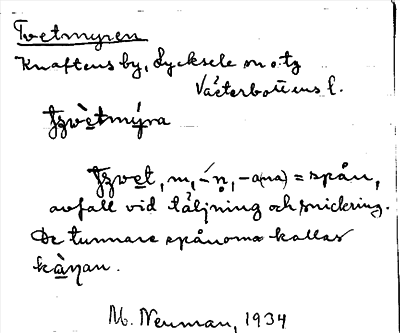 Tvetmyren
Knaftens by, Lycksele sn o. tg
Västerbottens l.
Tzvètmýra
Tzvet, m, -ń̥, -a(na) = spån,
avfall vid täljning och snickring.
De tunnare spånorna kallas
kàŋan.
M. Neuman, 1934